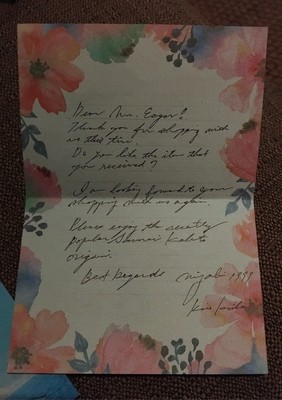 Dear Mr. Eager!
Thank you for shopping with
us this time.
Do you like the item that
you received?
I am looking forward to your
shopping with us again.
Please enjoy the
popular Samurai Kabuto
origami.
Best Regards